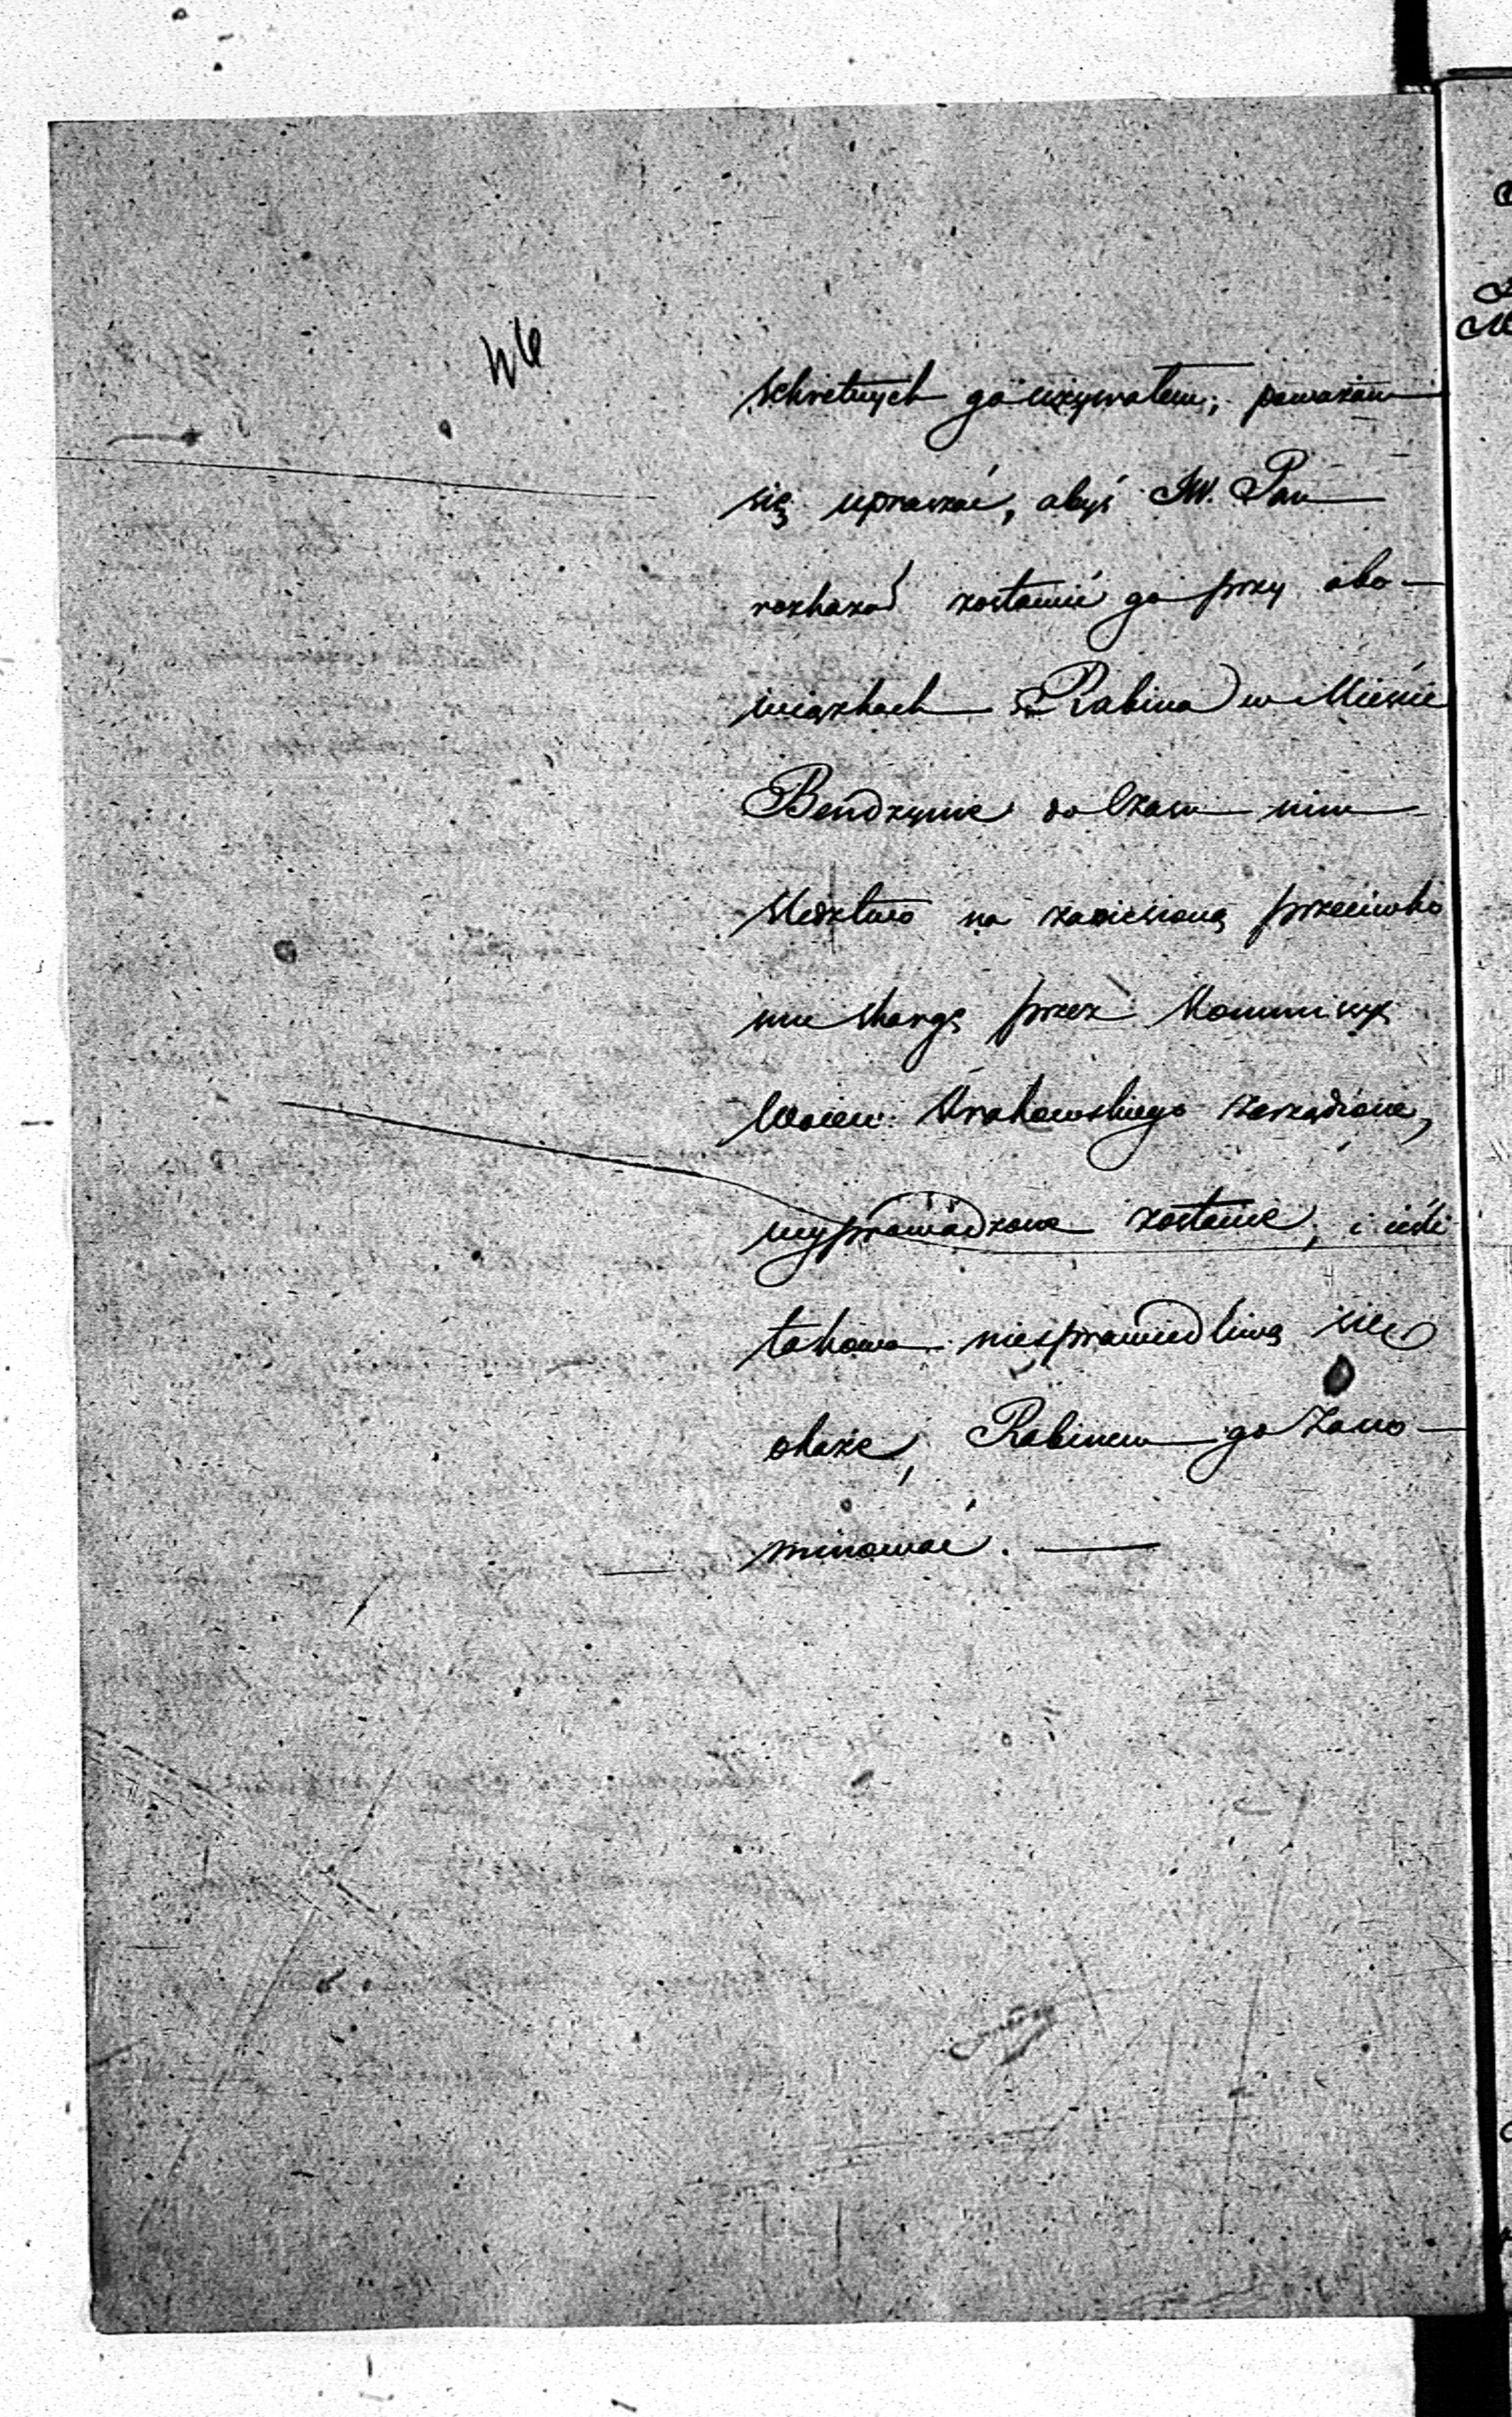 46
sekretnych go używałem; poważam
się upraszać, abyś JW. Pan
rozkazał zostawić go przy obo-
wiązkach Rabina w Mieście
Bendzynie do Czasu nim
Śledztwo na zaniesioną przeciwko
mu skargę przez Kommissyę
Woiew: Krakowskiego zarządzone,
wyprowadzone zostanie, i ieśli
takowa niesprawiedliwą się
okaże, Rabinem go Zano-
minować.